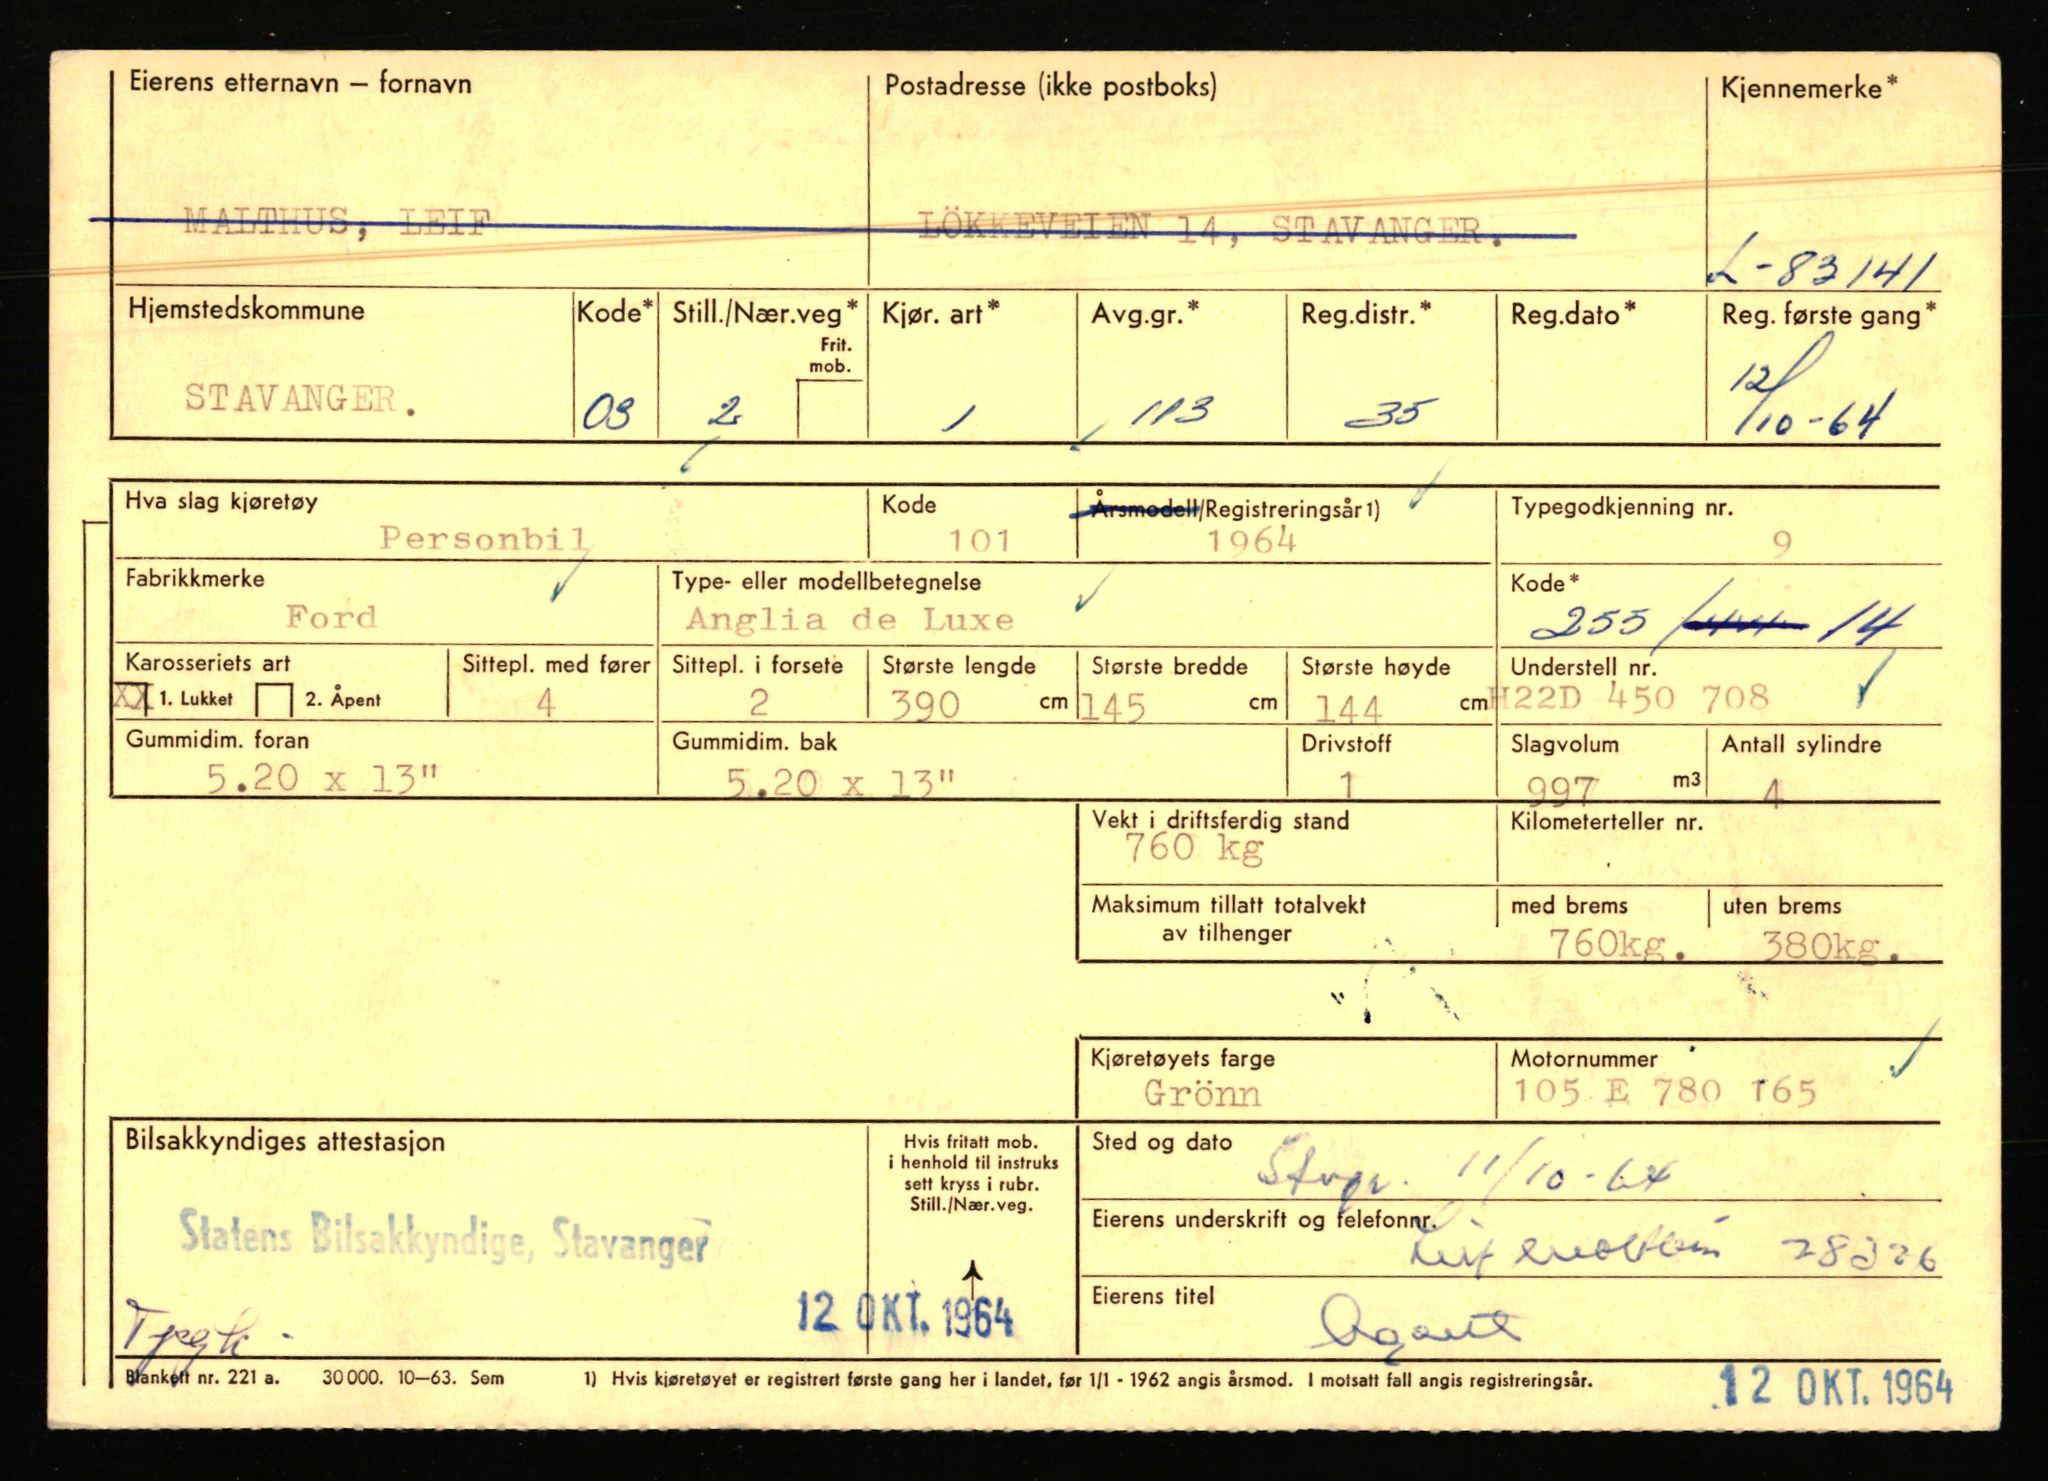 Eierens etternavn – fornavn Postadresse (ikke postboks) Kjennemerke*
MALTHUS, LEIF LÖKKEVEIEN 14, STAVANGER.
L-83141
Hjemstedskommune Kode* Still./Nær.veg* Kjør. art* Avg.gr.* Reg.distr.* Reg.dato* Reg. første gang*
Frit.
mob.
STAVANGER. 03 2 1 113 35 12/10-64
Hva slag kjøretøy Kode Årsmodell/Registreringsår 1) Typegodkjenning nr.
Personbil 101 1964 9
Fabrikkmerke Type- eller modellbetegnelse Kode*
Ford Anglia de Luxe 255 / 14
Karosseriets art Sittepl. med fører Sittepl. i forsete Største lengde Største bredde Største høyde Understell nr.
XX 1. Lukket 2. Åpent 4 2 390 cm 145 cm 144 cm H22D 450 708
Gummidim. foran Gummidim. bak Drivstoff Slagvolum Antall sylindre
5.20 x 13" 5.20 x 13" 1 997 m3 4
Vekt i driftsferdig stand Kilometerteller nr.
760 kg
Maksimum tillatt totalvekt med brems uten brems
av tilhenger 760kg. 380kg.
Kjøretøyets farge Motornummer
Grönn 105 E 780 165
Bilsakkyndiges attestasjon Hvis fritatt mob. Sted og dato
i henhold til instruks
sett kryss i rubr.
Still./Nær.veg.
Stvgr. 11/10-64
Eierens underskrift og telefonnr.
Statens Bilsakkyndige, Stavanger Leif Malthus 28326
Eierens titel
12 OKT. 1964 Agent
Typgk.
Blankett nr. 221 a. 30 000. 10–63. Sem 1) Hvis kjøretøyet er registrert første gang her i landet, før 1/1 - 1962 angis årsmod. I motsatt fall angis registreringsår.
12 OKT. 1964